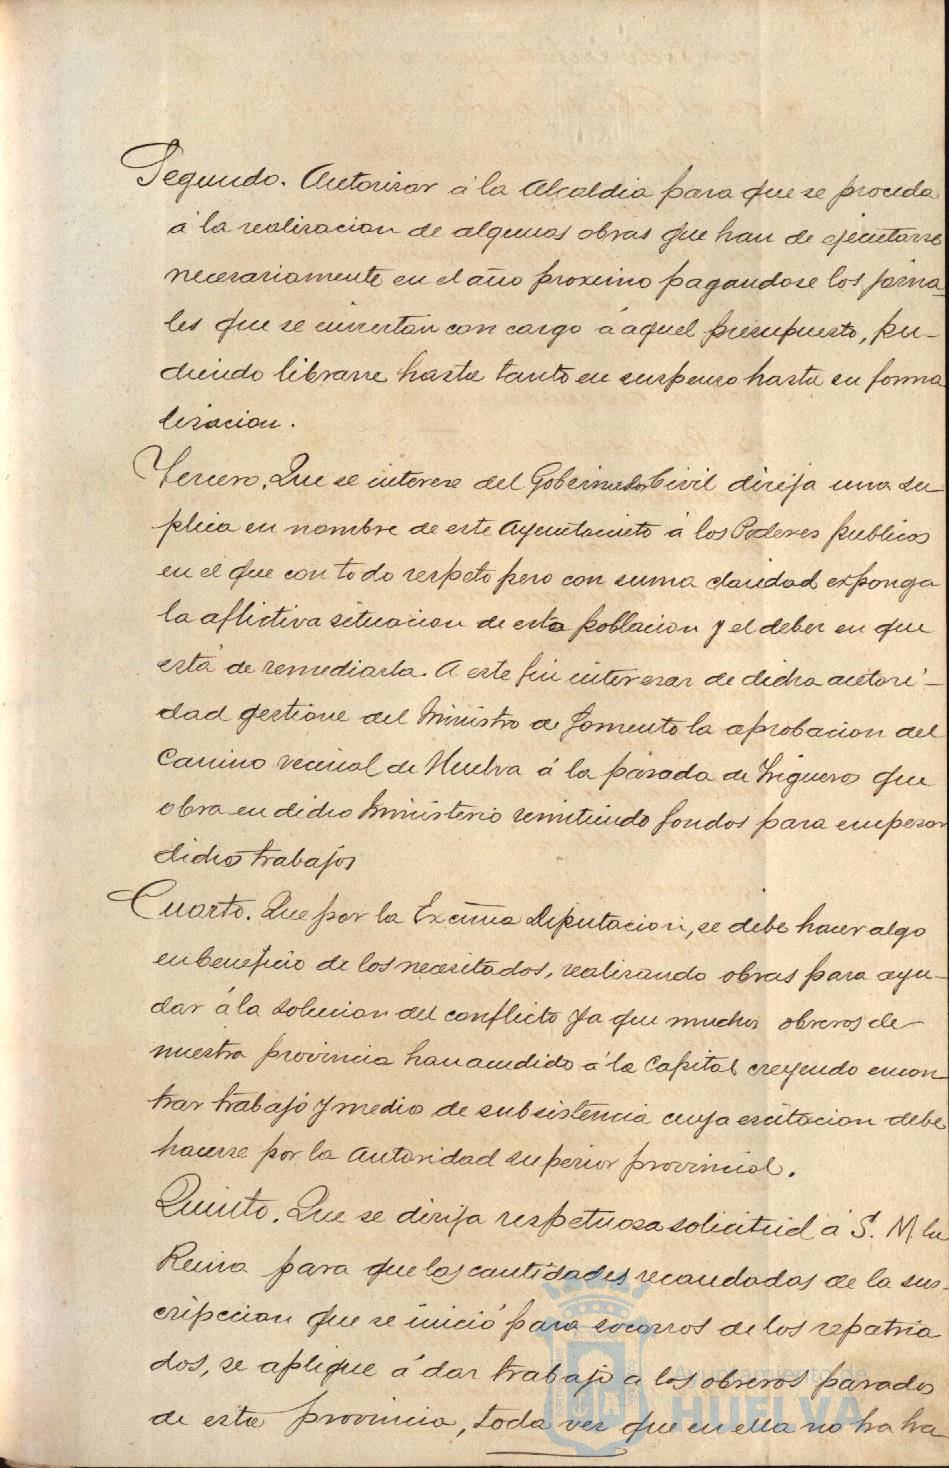 Segundo. Autorizar á la Alcaldia para que se proceda
á la realizacion de algunas obras que han de ejecutarse
necesariamente en el año proximo pagandose los jorna-
les que se inviertan con cargo á aquel presupuesto, pu-
diendo librarse hasta tanto en suspenso hasta su forma
lizacion.
Tercero. Que se interese del Gobernador Civil dirija una su-
plica en nombre de este Ayuntamieto á los Poderes publicos
en el que con todo respeto pero con suma claridad exponga
la aflictiva situacion de esta poblacion y el deber en que
está de remediarla. A este fin interesar de dicha autori-
dad gestione del Ministro de Fomento la aprobacion del
Camino vecinal de Huelva á la parada de Trigueros que
obra en dicho Ministerio remitiendo fondos para empezar
dichos trabajos
Cuarto. Que por la Excma Diputacion, se debe hacer algo
en beneficio de los necesitados, realizando obras para ayu-
dar á la solucion del conflicto ya que muchos obreros de
nuestra provincia han acudido á la Capital creyendo encon
trar trabajo y medios de subsistencia cuya escitacion debe
hacerse por la Autoridad superior provincial.
Quinto. Que se dirija respetuosa solicitud á S. M la
Reina para que las cantidades recaudadas de la sus-
cripccion que se inició para socorros de los repatria
dos, se aplique á dar trabajo a los obreros parados
de esta provincia, toda vez que en ella no ha ha-
Ayuntamiento de
HUELVA